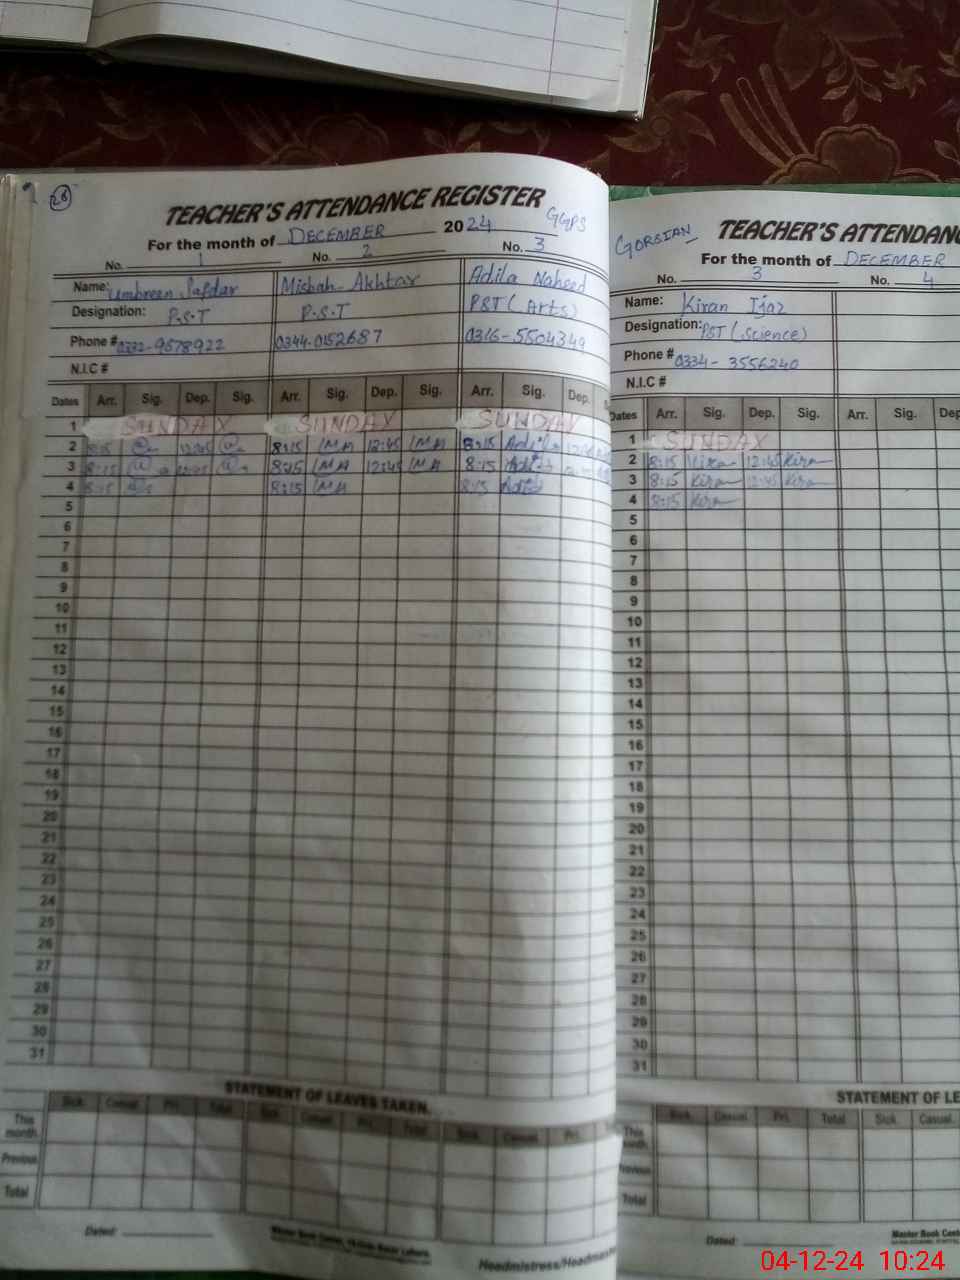 28
TEACHER'S ATTENDANCE REGISTER
GGPS
For the month of DECEMBER 2024
No. 1 No. 2 No. 3
Name: Umbreen Safdar Misbah Akhtar Adila Naheed
Designation: P.S.T P.S.T PST (Arts)
Phone # 0332-9678922 0344-0152687 0316-5504349
N.I.C #
Dates Arr. Sig. Dep. Sig. Arr. Sig. Dep. Sig. Arr. Sig. Dep.
1 SUNDAY SUNDAY SUNDAY
2 8:15 12:45 8:15 MA 12:45 MA 8:15 Adila
3 8:15 12:45 8:15 MA 12:45 MA 8:15 Adila
4 8:15 8:15 MA 8:15 Adila
5
6
7
8
9
10
11
12
13
14
15
16
17
18
19
20
21
22
23
24
25
26
27
28
29
30
31
STATEMENT OF LEAVES TAKEN.
Sick. Casual. Pri. Total Sick. Casual. Pri. Total Sick. Casual. Pri.
This month.
Previous
Total
Dated:
Headmistress/Headmas
GORSIAN
TEACHER'S ATTENDANC
For the month of DECEMBER
No. 3 No. 4
Name: Kiran Ijaz
Designation: PST (Science)
Phone # 0334-3556240
N.I.C #
Dates Arr. Sig. Dep. Sig. Arr. Sig. Dep
1 SUNDAY
2 8:15 Kiran 12:45 Kiran
3 8:15 Kiran 12:45 Kiran
4 8:15 Kiran
5
6
7
8
9
10
11
12
13
14
15
16
17
18
19
20
21
22
23
24
25
26
27
28
29
30
31
STATEMENT OF LE
Sick. Casual. Pri. Total Sick. Casual.
This month.
Previous
Total
Dated:
Master Book Cent
04-12-24 10:24